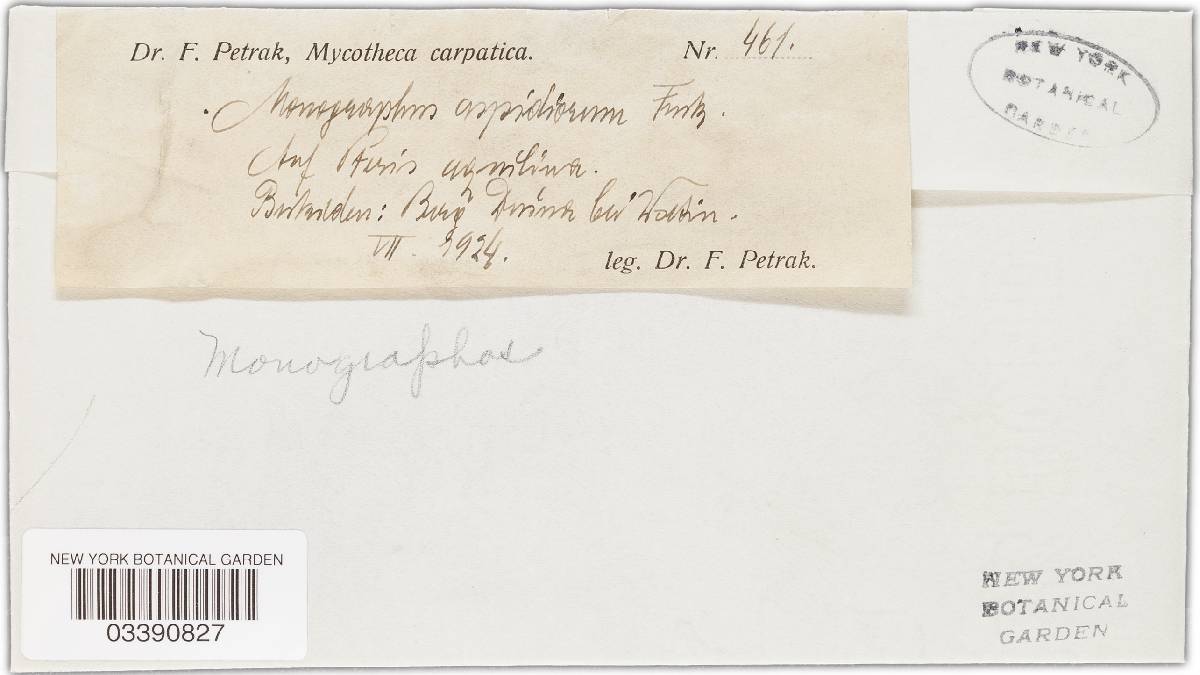 Dr. F. Petrak, Mycotheca carpatica. Nr. 461.
Monographus aspidiorum Fuck.
Auf Pteris aquilina.
Beskiden: Berg Duina bei Wsetin.
VII. 1924.
leg. Dr. F. Petrak.
NEW YORK
BOTANICAL
GARDEN
Monographos
NEW YORK BOTANICAL GARDEN
03390827
NEW YORK
BOTANICAL
GARDEN